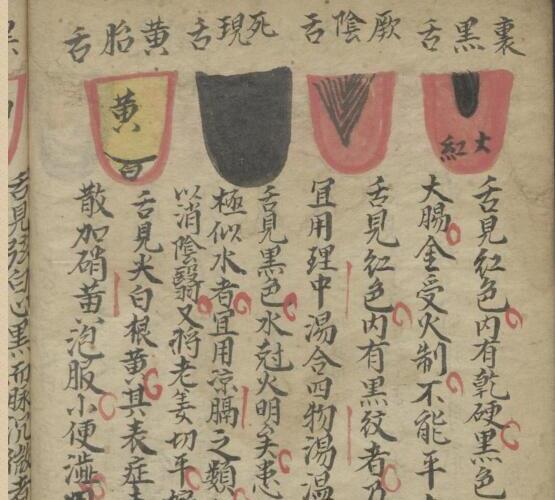 裏黑舌
大紅
舌見紅色内有乾硬黑色
大腸金受火制不能平
厥陰舌
舌見紅色内有黑紋者乃
宜用理中湯合四物湯溫
死現舌
舌見黑色水尅火明矣患
極似水者宜用凉膈之類
以消陰翳又將老姜切平
黃胎舌
黃
白
舌見尖白根黃其表症未
散加硝黃泡服小便澁
舌見弦白心黑而脉沉微者